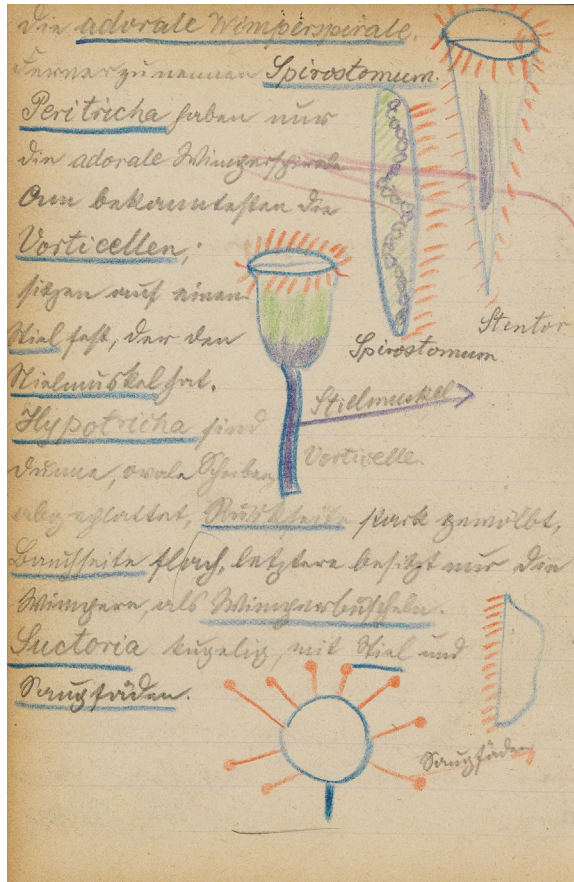 die adorale Wimperspirale.
Ferner zu nennen Spirostomum.
Peritricha haben nur
die adorale Wimperspirale
Am bekanntesten die
Vorticellen;
sitzen auf einem
Stiel fest, der den
Stielmuskel hat.
Hypotricha sind
dünne, ovale Scheiben,
abgeplattet, Rückseite stark gewölbt,
Bauchseite flach, letztere besitzt nur die
Wimpern, als Wimperbüscheln.
Suctoria kugelig, mit Stiel und
Saugfäden.
Stentor
Spirostomum
Stielmuskel
Vorticelle.
Saugfäden